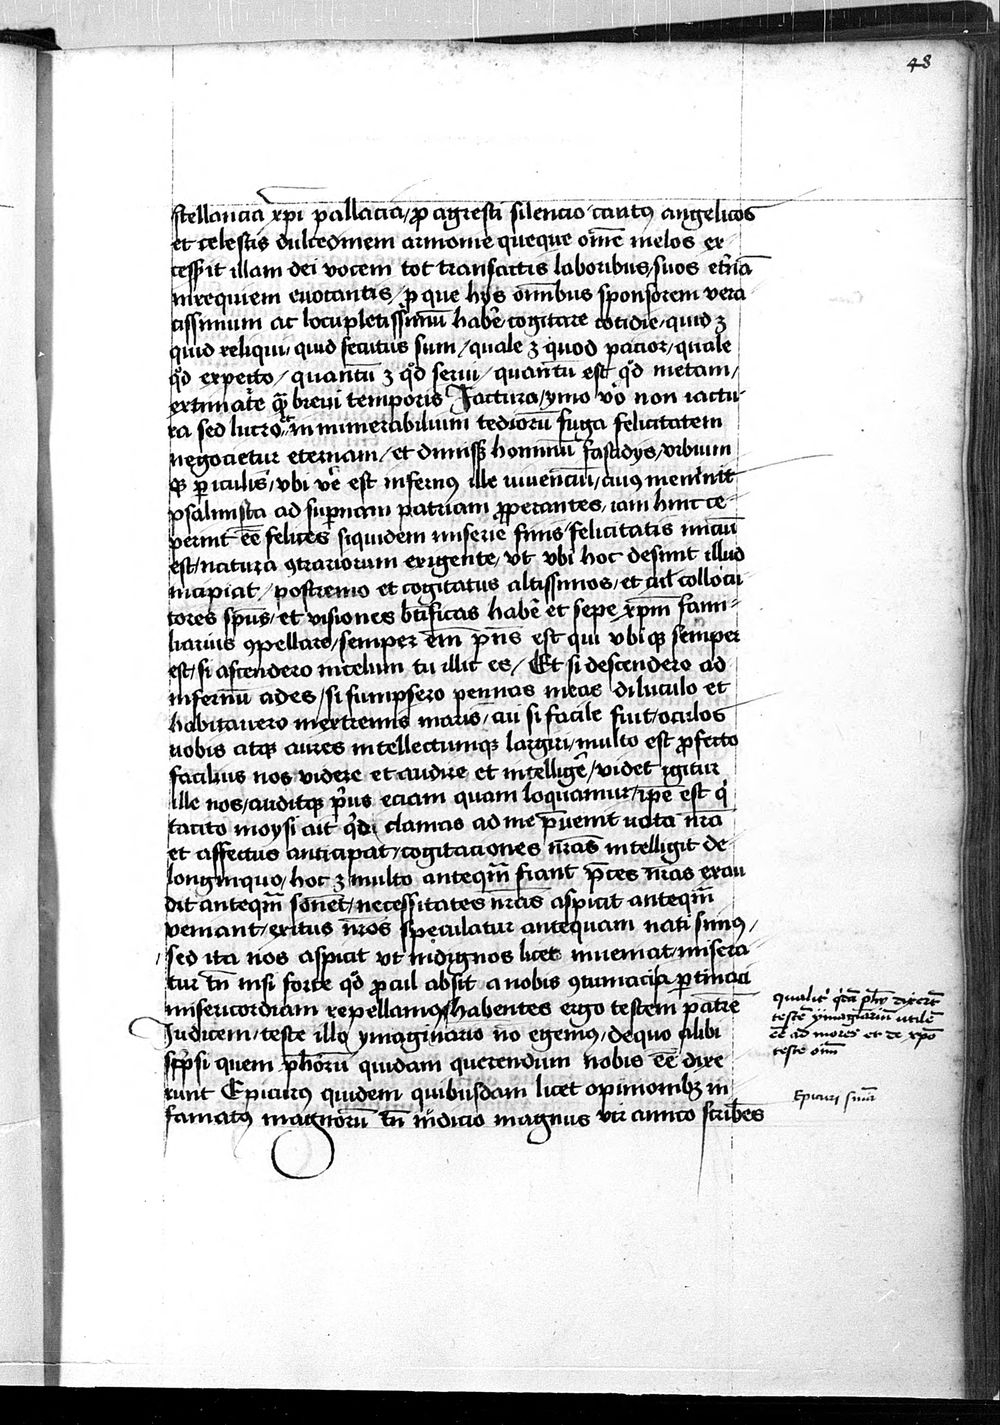 48
stellancia xpi pallacia / ꝓ agresti silencio cantꝰ angelicos
et celestis dulcedinem armonie queque om̄e melos ex
cessit illam dei vocem tot transactis laboribus / suos et̄nā
in requiem euocantis / ꝓ que hijs om̄ibus sponsorem vera
cissimum ac locupletissimū habe᷑ cogitare cotidie / quid ꝫ
quid reliqui / quid secutus sum / quale ꝫ quod pacior / quale
qd̛ expecto / quantū ꝫ qd̛ serui / quantū est qd̛ metam /
extimate qͣ breui temporis Jactura / ymo vơ non iactu
ra sed lucro et innumerabilium tediorū fuga felicitatem
negocietur eternam / et dimissꝭ hominū fastidijs / vrbium
qꝫ ꝑiculis / vbi ve̛ est infernꝰ ille viuenciū / cuiꝰ meminit
psalmista ad suꝑnam patriam ꝓperantes / iam hinc ce
perint ee̅ felices siquidem miserie finis felicitatis iniciū
est / natura ꝯtrariorum exigente / vt vbi hoc desinit illud
incipiat / postremo et cogitatus altissimos / et ad collocu
tores sp̄us / et visiones bt̄ificas habe᷑ et sepe xp̄m fami
liarius ꝯpellare / semper em̄ pn̄s est qui vbi qꝫ semper
est / si ascendero in celum tu illic es / Et si descendero ad
infernū ades / si sumpsero pennas meas diluculo et
habitauero in extremis maris / an si facile fuit / oculos
nobis atqꝫ aures intellectumqꝫ largiri / multo est ꝓfecto
facilius nos videre et audire et intellige᷑ / videt igitur
ille nos / auditqꝫ p̛us eciam quam loquamur / ip̄e est q̛
tacito moysi ait qd̛ clamas ad me p̄uenit uota nr̄a
et affectus anticipat / cogitaciones nr̄as intelligit de
longinquo / hoc ꝫ multo anteqm̄ fiant p̄ces nr̄as exau
dit anteqm̄ sonet / necessitates nr̄as aspicit anteqm̄
veniant / exitus nr̄os speculatur antequam nati simꝰ /
sed ita nos aspicit vt indignos licet inueniat / misera
tur tn̄ nisi forte qd̛ ꝓcul absit a nobis ꝯtumacia ꝑtinaci
misericordiam repellamꝰ / habentes ergo testem patre̅
Judicem / teste illo ymaginario no̅ egemꝰ / de quo alibi
scͥpsi quem ph̄orū quidam querendum nobis ee̅ dixe
runt Epicurꝰ quidem quibusdam licet opinionibꝫ in
famatꝰ magnorū tn̄ iudicio magnus vir amico scribe̅s
qualit̛ qd̄a ph̄us dixert̄
teste̅ ymaginariū utile̅
ee̅ ad mores et de xp̄o
teste om̄
Epicuri sm̄a